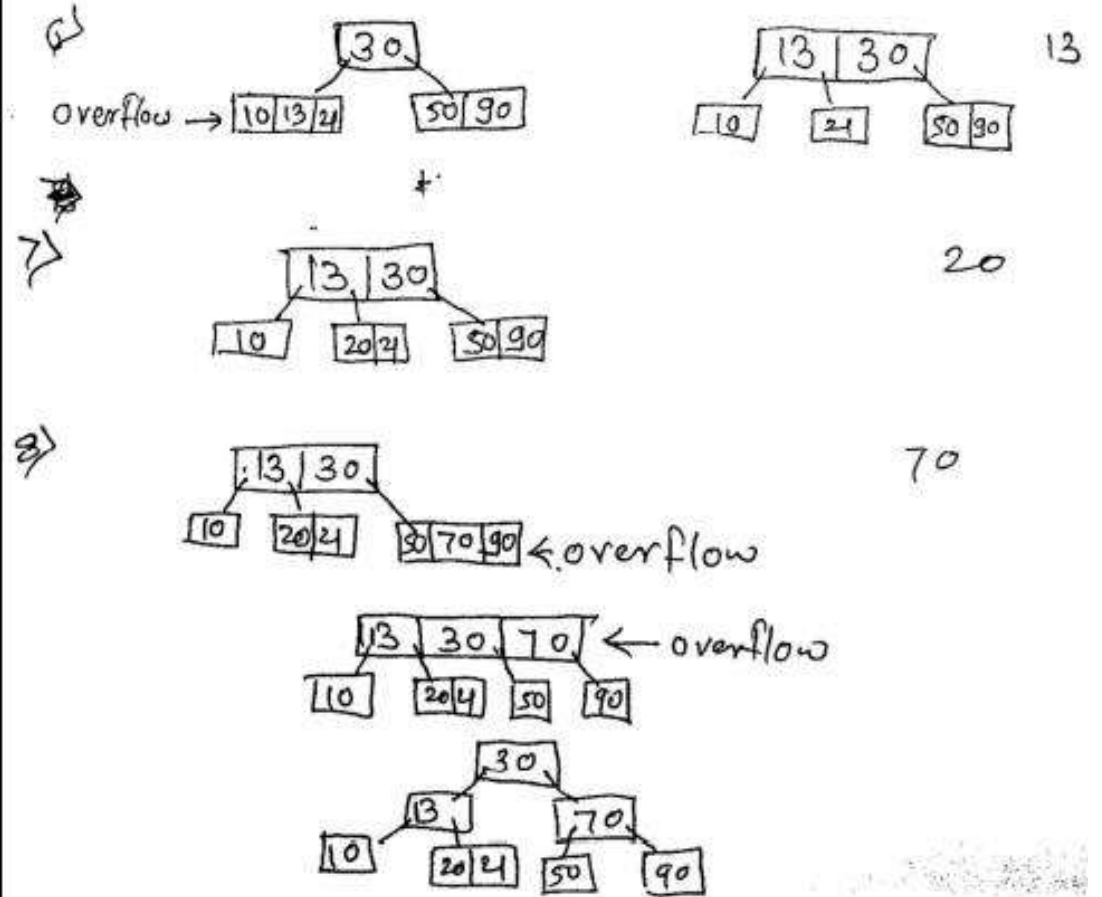 6)
30
13 30 13
overflow → 10 13 21 50 90
10 21 50 90
7)
13 30 20
10 20 21 50 90
8)
13 30 70
10 20 21 50 70 90 ← overflow
13 30 70 ← overflow
10 20 21 50 90
30
13 70
10 20 21 50 90